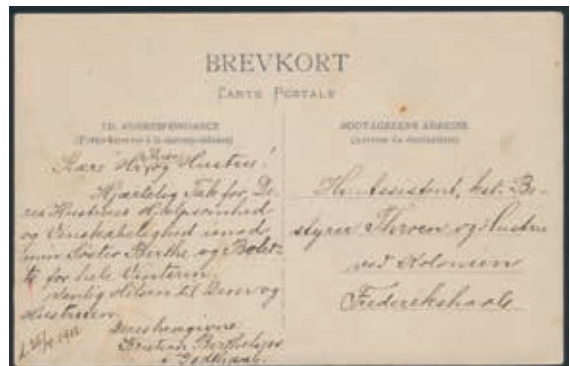 BREVKORT
CARTE POSTALE
TIL KORRESPONDANCE
(Partie réservée à la correspondance)
Kære Hr. og Hustru!
Hjærtelig Tak for De-
res Hustrues Hjelpsomhed
og Venskabelighed imod
min Søster Berthe og Bolet-
te for hele Vinterin.
Venlig Hilsen til Dem og
Hustruen.
Dereshengivne
Kristian Berthelsen
Godthaab.
MODTAGERENS ADRESSE
(Adresse du destinataire)
Hr. Assistent, kst. Be-
styrer Thron og Hustru
ved Kolonien
Frederikshaab.